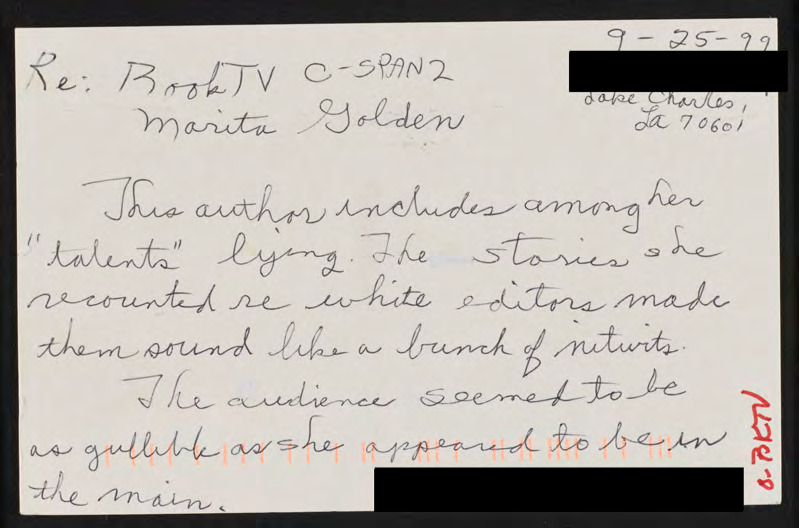 9-25-99
Re: BookTV C-SPAN2
Lake Charles,
Marita Golden
La 70601
This author includes among her
"talents" lying. The stories she
recounted re white editors made
them sound like a bunch of nitwits.
The audience seemed to be
as gullible as she appeared to be in
the main.
B-BKTV